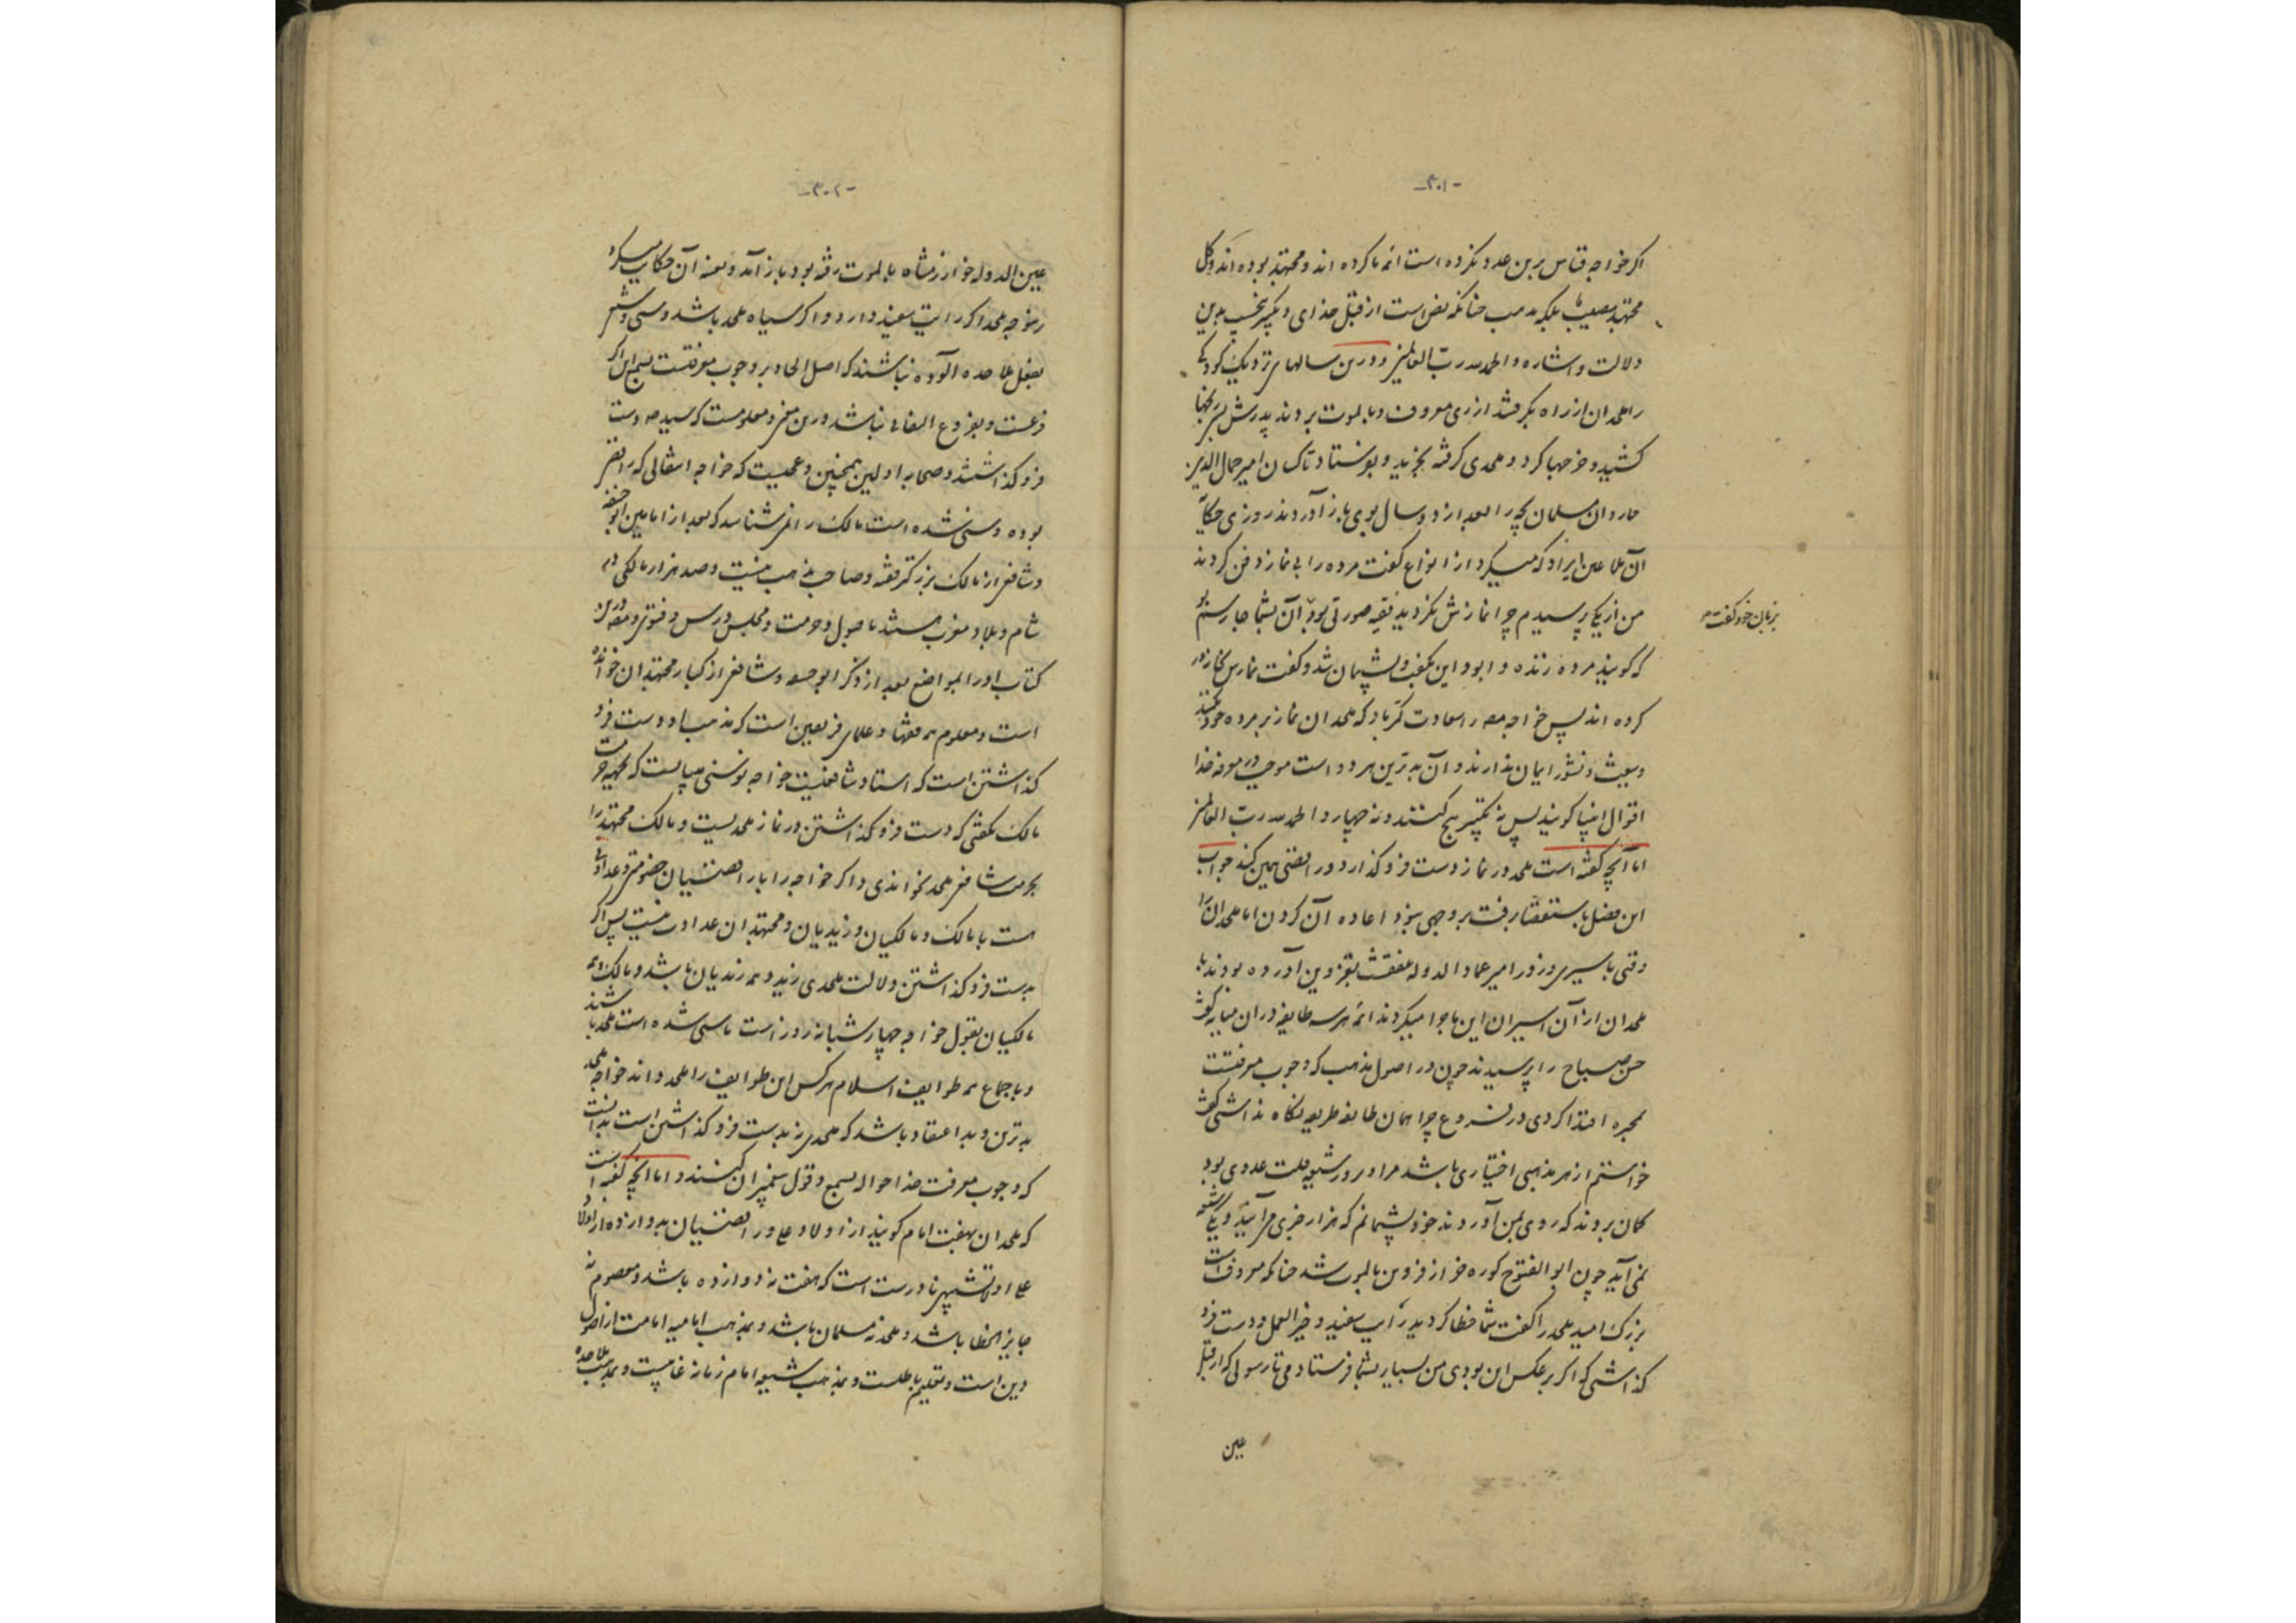 -۳۰۱-
اکر خواجه قیاس برین عدد نکرده است ائمه ما کرده اند و مجتهد بوده اند و کل
مجتهد مصیب بلکه بمذهب چنانکه نص است از قبل خدای و پیغمبر بدین
دلالت و اشاره و الحمد لله رب العالمین و درین سالهای نزدیک کودکی
را ملحدان از راه بگرفتند از ری معروف و بالموت بردند پدرش رنجها
کشید و خرجها کرد و ملحدی گرفته بخرید و بفرستاد تا کسان امیر جمال الدین
مسلمان بچه را بعد از دو سال بوی باز آوردند روزی حکایة
آن ملاعین ایراد که میکرد از انواع گفت مرده را بی نماز دفن کردند
من از یکی پرسیدم چرا نمازش نکردید فقیه صورتی بود آن
بزبان خود گفت
که گویند مرده زنده و ابود این بگفت و پشیمان شد و گفت نمازش
کرده اند پس خواجه معلوم باد که ملحدان نماز بر مرده خود نکنند
و ببعث و نشور ایمان ندارند و آن بدترین هر دو است موجب در معرفة خدا
اقوال انبیا گویند پس نه تکبیر پنج کنند و نه چهار و الحمد لله رب العالمین
اما آنچه گفته است ملحد در نماز دست فرو گذارد و رافضی همین کند جواب
این فصل باستقصا رفت بر وجهی اعاده آن کردن اما ملحدان را
وقتی باسیری در روز امیر عماد الدوله بقزوین آورده بودند با
ملحدان از آن اسیران این ماجرا میکردند ائمه هر سه طایفه در آن میانه گفت
حسن صباح را پرسیدند چون در اصول مذهب که وجوب معرفتست
بمجبره اقتدا کردی در فروع چرا همان طایفه طریقه نگاه نداشتی گفت
خواستم از هر مذهبی اختیاری باشد مرا و در شیعیت عددی بود
گمان بردند که روی بمن آوردند خود پشیمانم که هزار جبری می آید و یک شیعه
نمی آید چون ابو الفتوح از قزوین بالموت شد چنانکه معروفست
بزرگ امید ملحد را گفت شما خطا کردید رایت سفید و خیر العمل و دست فرو
گذاشتی که اگر بر عکس این بودی من بسیار بشما فرستادمی تا رسولی که از قبل
عین
-۳۰۲-
عین الدوله خوارزمشاه بالموت رفته بود باز آمد و بعینه آن حکایت میکرد
رمزجه ملحد اگر رایت سفید دارد و اگر سیاه ملحد باشد و سنی و شیعی
بفعل ملاحده آلوده نباشند که اصل الحاد بر وجوب معرفتست بسمع این اگر
فرعست و بفروع التفاتی نباشد درین معنی و معلومست که سید دست
فرو گذاشتند و صحابه اولین همچنین و عجبست که خواجه انتقالی که رافضی
بوده و سنی شده است مالک را نمی شناسد که بعد از امامین ابو حنیفه
و شافعی از مالک بزرگتر فقیه و صاحب مذهب نیست و صد هزار مالکی در
شام و بلاد مغرب هستند با صول و حرمت و مجلس درس و فتوی و درین
کتاب او را المواضع بعد از ذکر ابو حنیفه و شافعی از کبار مجتهدان خوانده
است و معلوم همه فقها و علمای فریقین است که مذهب او دست فرو
گذاشتن است که استاد شافعیست خواجه نو سنی میبایست که بجهة حرمت
مالک نگفتی که دست فرو گذاشتن در نماز ملحدیست و مالک مجتهد را
بحرمت شافعی ملحد نخواندی و اگر خواجه را با رافضیان خصومتی و عداوتی
هست با مالک و مالکیان و زیدیان و مجتهدان عداوت نیست پس اگر
بدست فرو گذاشتن دلالت ملحدی زید و همه زیدیان باشد و مالک و همه
مالکیان بقول خواجه چهار شبانه روز است تا سنی شده است ملحد باشند
و باجماع همه طوایف اسلام هر کس این طوایف را ملحد داند خواجه ملحد
بدترین و بد اعتقاد باشد که ملحدی نه بدست فرو گذاشتن است بدانست
که وجوب معرفت خدا حواله بسمع و قول پیغمبران کنند و اما آنچه گفته است
که ملحدان بهفت امام گویند از اولاد علی و رافضیان بدوازده از اولاد
علی اولا تشبیهی نادرست است که هفت نه دوازده باشد و معصوم نه
جایز الخطا باشد و ملحد نه مسلمان باشد و بمذهب امامیه امامت از اصول
دین است و تعلیم باطلست و بمذهب شیعه امام زمانه غایبست و بمذهب ملاحده